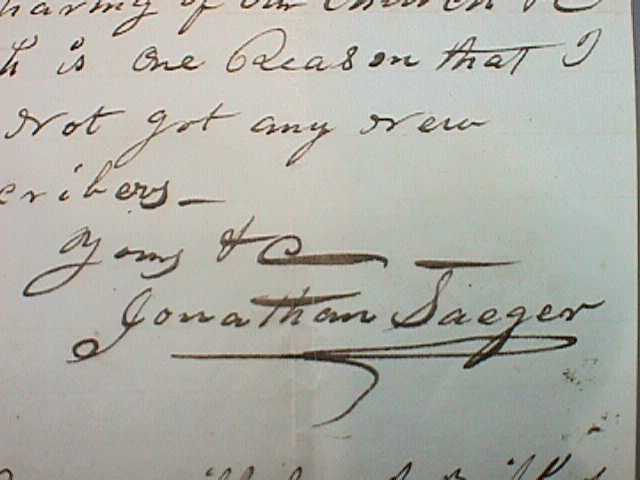 of our Church &
is one Reason that I
Not got any New
cribers_
Yours &c
Jonathan Saeger